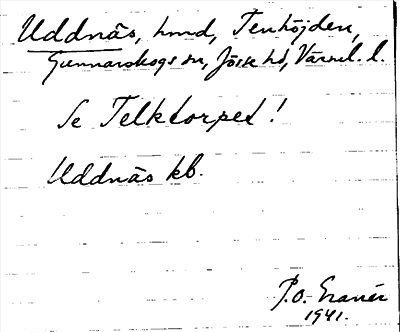 Uddnäs, hmd, Tenhöjden,
Gunnarskogs sn, Jösse hd, Värml. l.
Se Telktorpet!
Uddnäs kb.
P.O. Granér
1941.